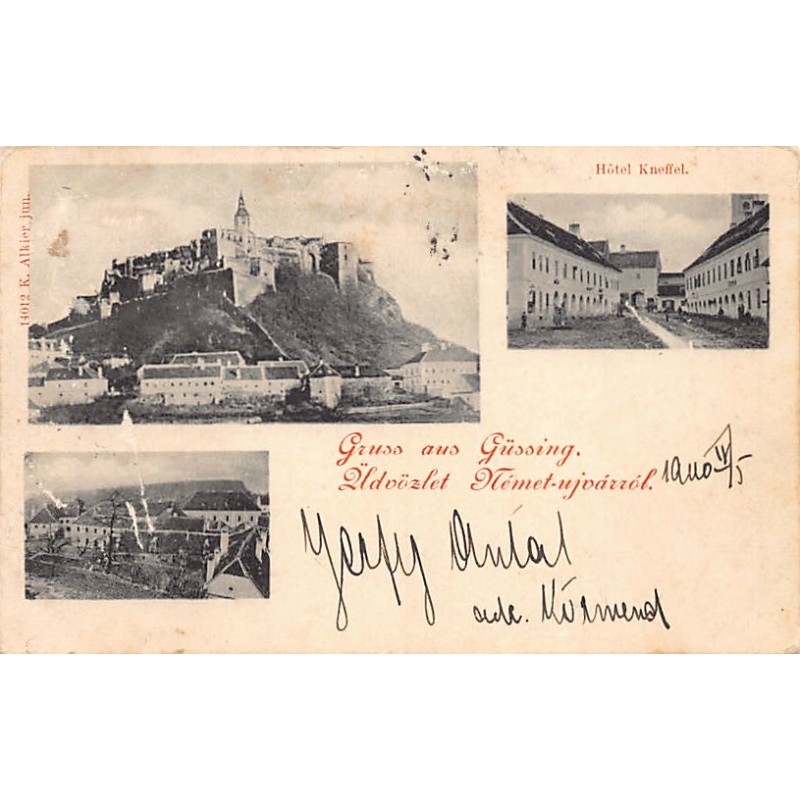 14012 K. Alkier jun.
Hôtel Kneffel.
Gruss aus Güssing.
Üdvözlet Német-ujvárról.
1900 IV/5
Antal
Körmend